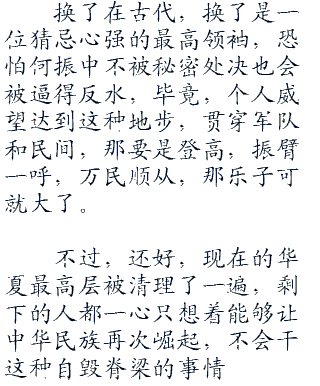 换了在古代，换了是一
位猜忌心强的最高领袖，恐
怕何振中不被秘密处决也会
被逼得反水，毕竟，个人威
望达到这种地步，贯穿军队
和民间，那要是登高，振臂
一呼，万民顺从，那乐子可
就大了。
不过，还好，现在的华
夏最高层被清理了一遍，剩
下的人都一心只想着能够让
中华民族再次崛起，不会干
这种自毁脊梁的事情